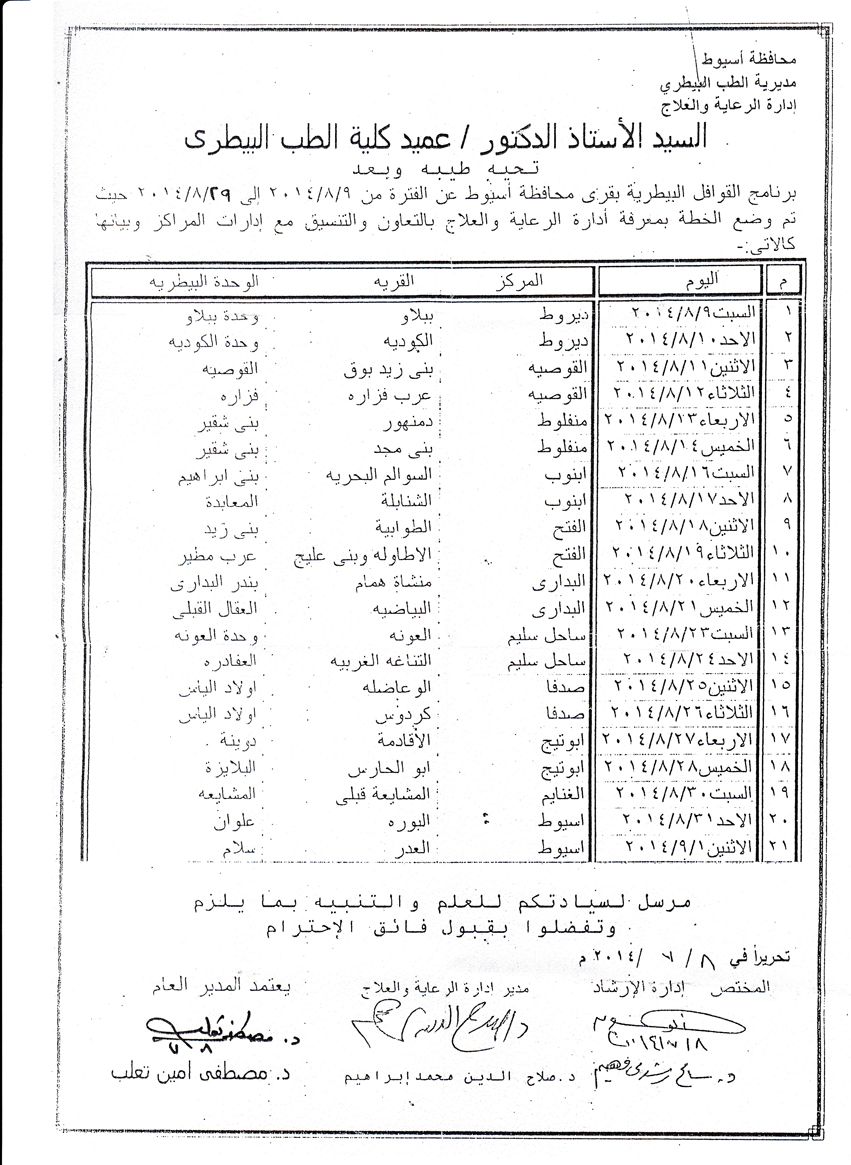 محافظة أسيوط
مديرية الطب البيطري
إدارة الرعاية والعلاج
السيد الأستاذ الدكتور / عميد كلية الطب البيطرى
تحيه طيبه وبعد
برنامج القوافل البيطرية بقرى محافظة أسيوط عن الفترة من ٢٠١٤/٨/٩ إلى ٢٠١٤/٨/٢٩ حيث
تم وضع الخطة بمعرفة أدارة الرعاية والعلاج بالتعاون والتنسيق مع إدارات المراكز وبيانها
كالاتى:-
م اليوم المركز القريه الوحدة البيطريه
١ السبت٢٠١٤/٨/٩ ديروط ببلاو وحدة ببلاو
٢ الاحد٢٠١٤/٨/١٠ ديروط الكوديه وحدة الكوديه
٣ الاثنين٢٠١٤/٨/١١ القوصيه بنى زيد بوق القوصيه
٤ الثلاثاء٢٠١٤/٨/١٢ القوصيه عرب فزاره فزاره
٥ الاربعاء٢٠١٤/٨/١٣ منفلوط دمنهور بنى شقير
٦ الخميس٢٠١٤/٨/١٤ منفلوط بنى مجد بنى شقير
٧ السبت٢٠١٤/٨/١٦ ابنوب السوالم البحريه بنى ابراهيم
٨ الاحد٢٠١٤/٨/١٧ ابنوب الشنابلة المعابدة
٩ الاثنين٢٠١٤/٨/١٨ الفتح الطوابية بنى زيد
١٠ الثلاثاء٢٠١٤/٨/١٩ الفتح الاطاوله وبنى عليج عرب مطير
١١ الاربعاء٢٠١٤/٨/٢٠ البدارى منشاة همام بندر البدارى
١٢ الخميس٢٠١٤/٨/٢١ البدارى البياضيه العقال القبلى
١٣ السبت٢٠١٤/٨/٢٣ ساحل سليم العونه وحدة العونه
١٤ الاحد٢٠١٤/٨/٢٤ ساحل سليم التناغه الغربيه العفادره
١٥ الاثنين٢٠١٤/٨/٢٥ صدفا الوعاضله اولاد الياس
١٦ الثلاثاء٢٠١٤/٨/٢٦ صدفا كردوس اولاد الياس
١٧ الاربعاء٢٠١٤/٨/٢٧ ابوتيج الأقادمة دوينة
١٨ الخميس٢٠١٤/٨/٢٨ ابوتيج ابو الحارس البلايزة
١٩ السبت٢٠١٤/٨/٣٠ الغنايم المشايعة قبلى المشايعه
٢٠ الاحد٢٠١٤/٨/٣١ اسيوط البوره علوان
٢١ الاثنين٢٠١٤/٩/١ اسيوط العدر سلام
مرسل لسيادتكم للعلم والتنبيه بما يلزم
وتفضلوا بقبول فائق الإحترام
تحريراً في ٨ / ٧ /٢٠١٤ م
المختص إدارة الإرشاد مدير ادارة الرعاية والعلاج يعتمد المدير العام
د. مصطفى ثعلب
٧/٨
د. سامح رشدى فهيم د.صلاح الدين محمد إبراهيم د. مصطفى امين تعلب